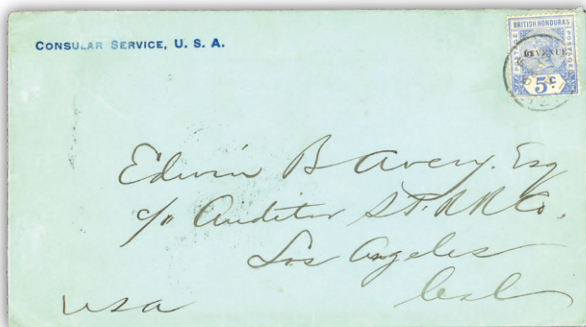 CONSULAR SERVICE, U. S. A.
BRITISH HONDURAS
POSTAGE
REVENUE
POSTAGE
5c
Edwin B Avery. Esq
c/o Auditor S.P. R R Co.
Los Angeles
Cal
USA